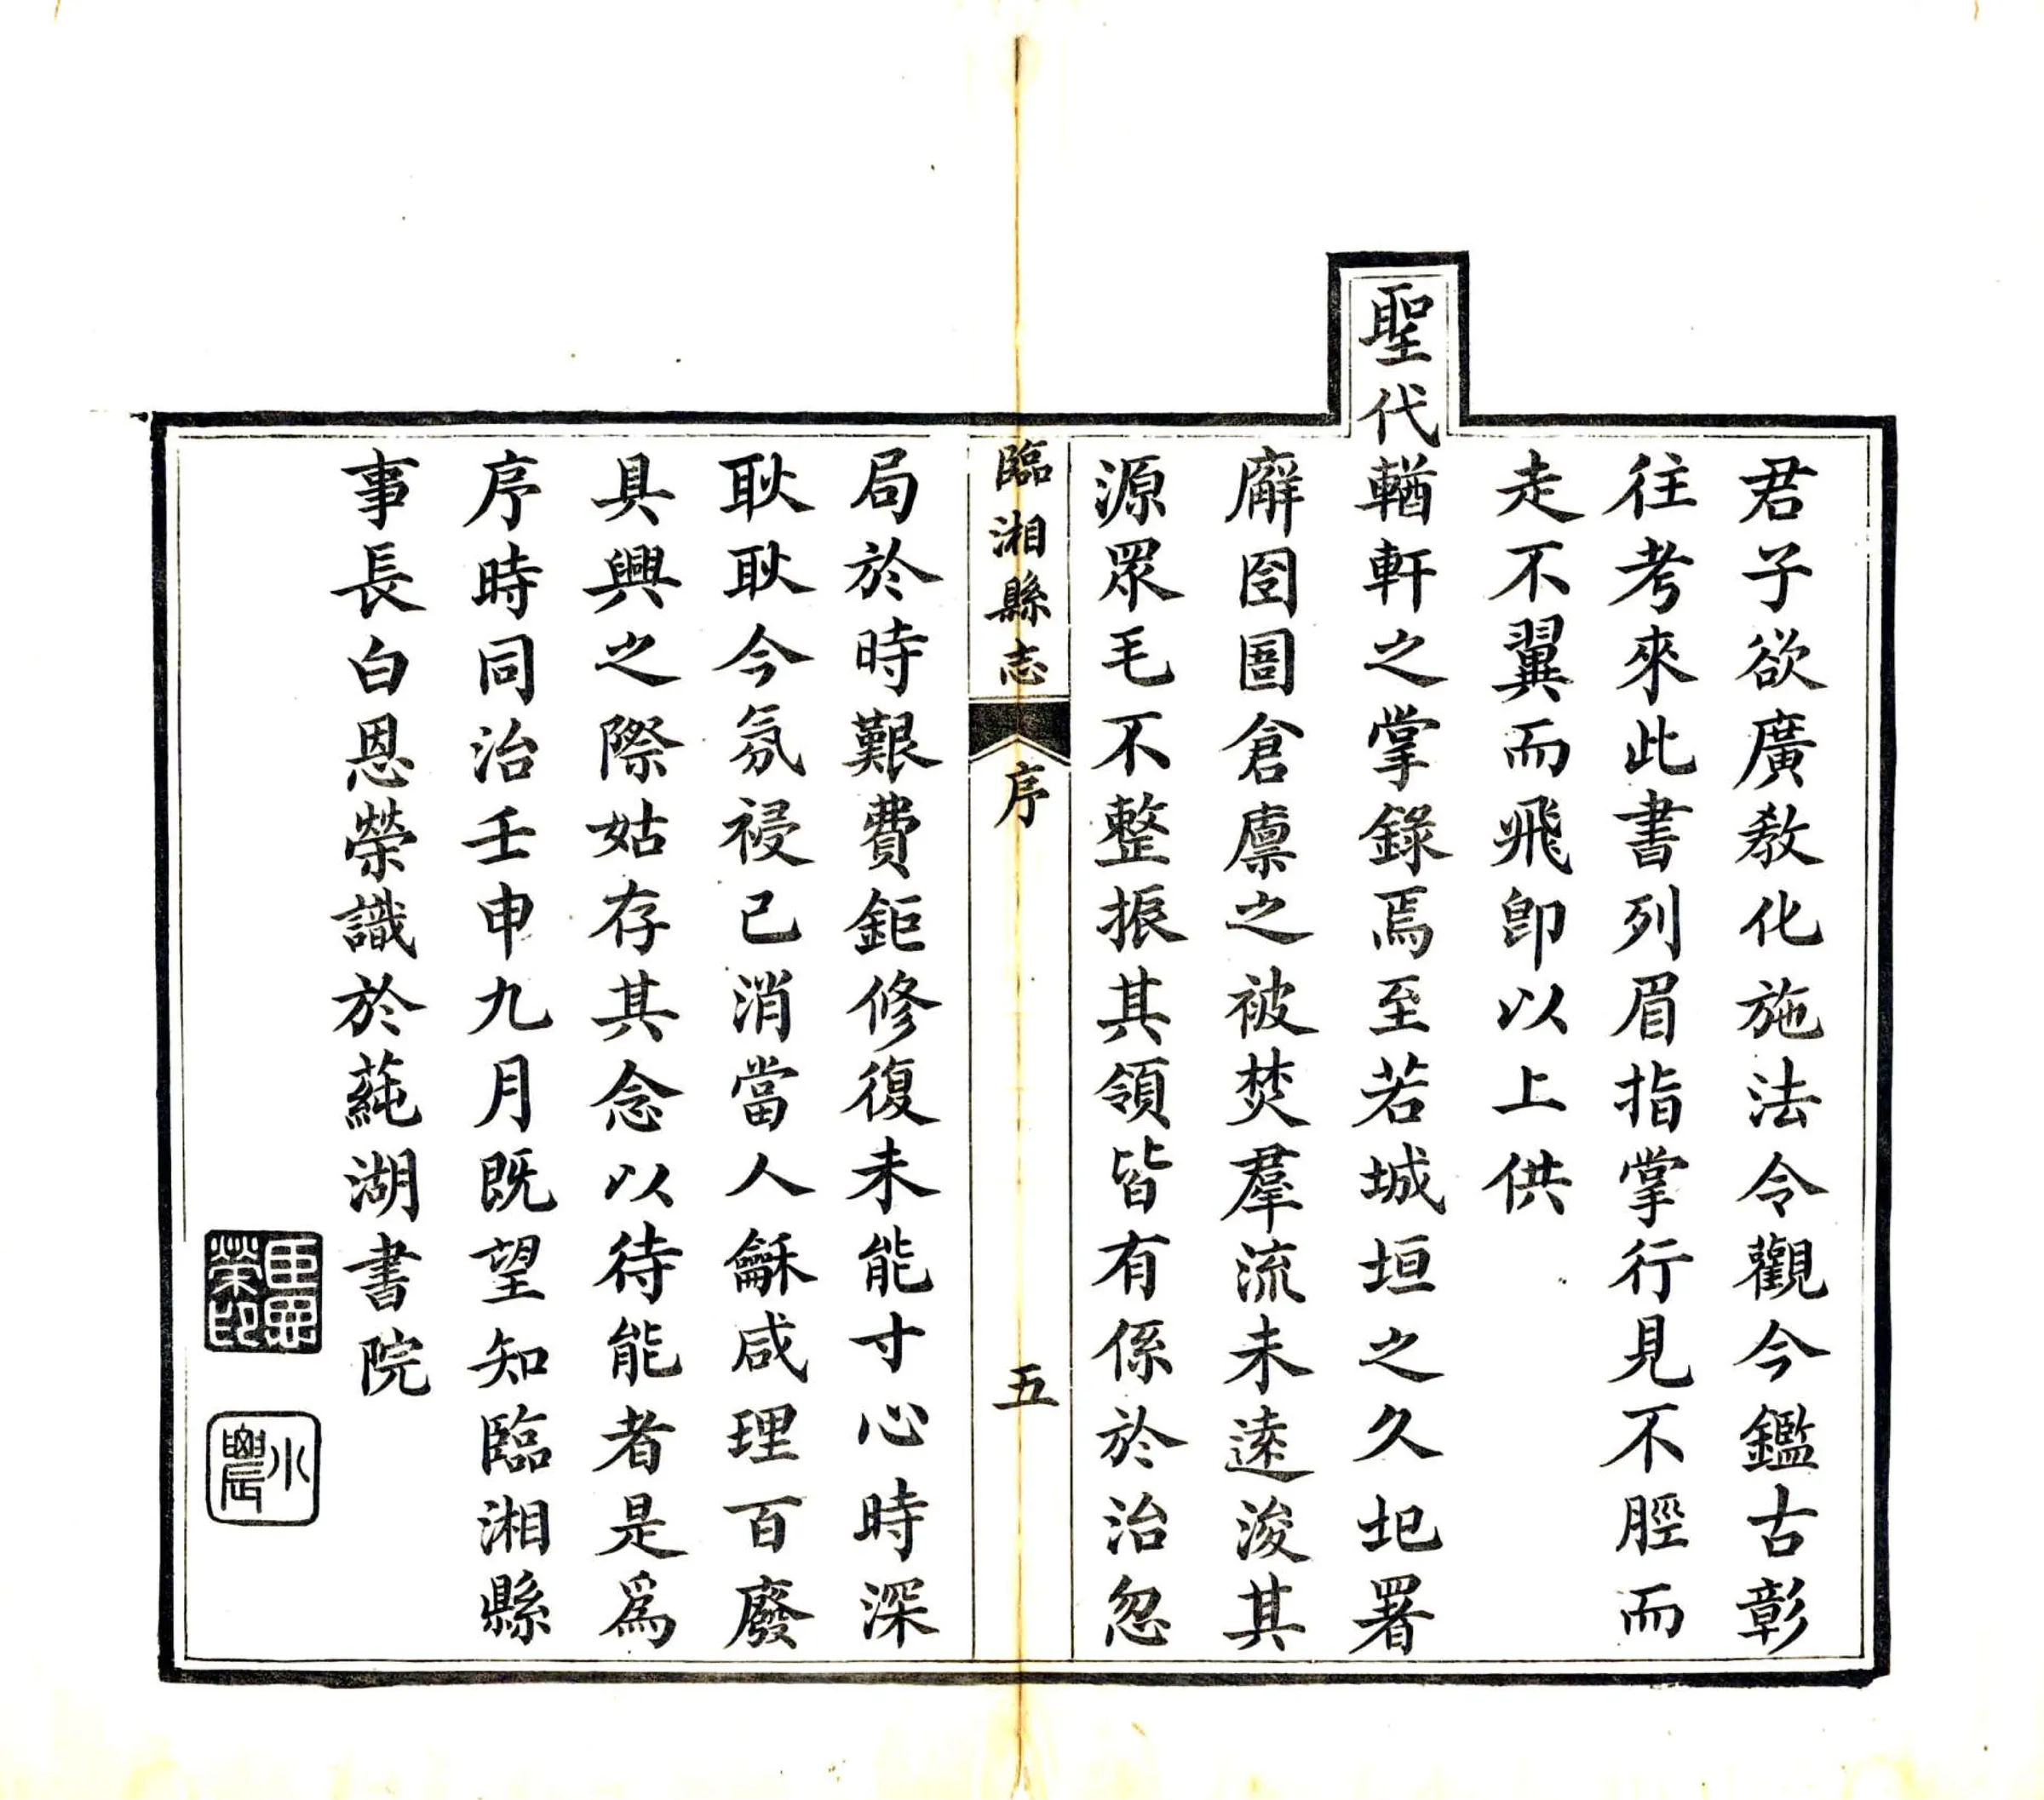 君子欲廣敎化施法令觀今鑑古彰
往考來此書列眉指掌行見不脛而
走不翼而飛卽以上供
聖代輶軒之掌錄焉至若城垣之久圮署
廨囹圄倉廪之被焚羣流未逺浚其
源眾毛不整振其領皆有係於治忽
臨湘縣志
序
五
局於時艱費鉅修復未能寸心時深
耿耿今氛祲已消當人龢咸理百廢
具興之際姑存其念以待能者是爲
序時同治壬申九月既望知臨湘縣
事長白恩榮識於蒓湖書院
恩榮印
小農